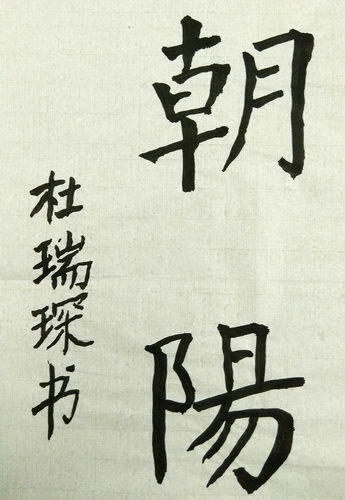 朝陽
杜瑞琛书